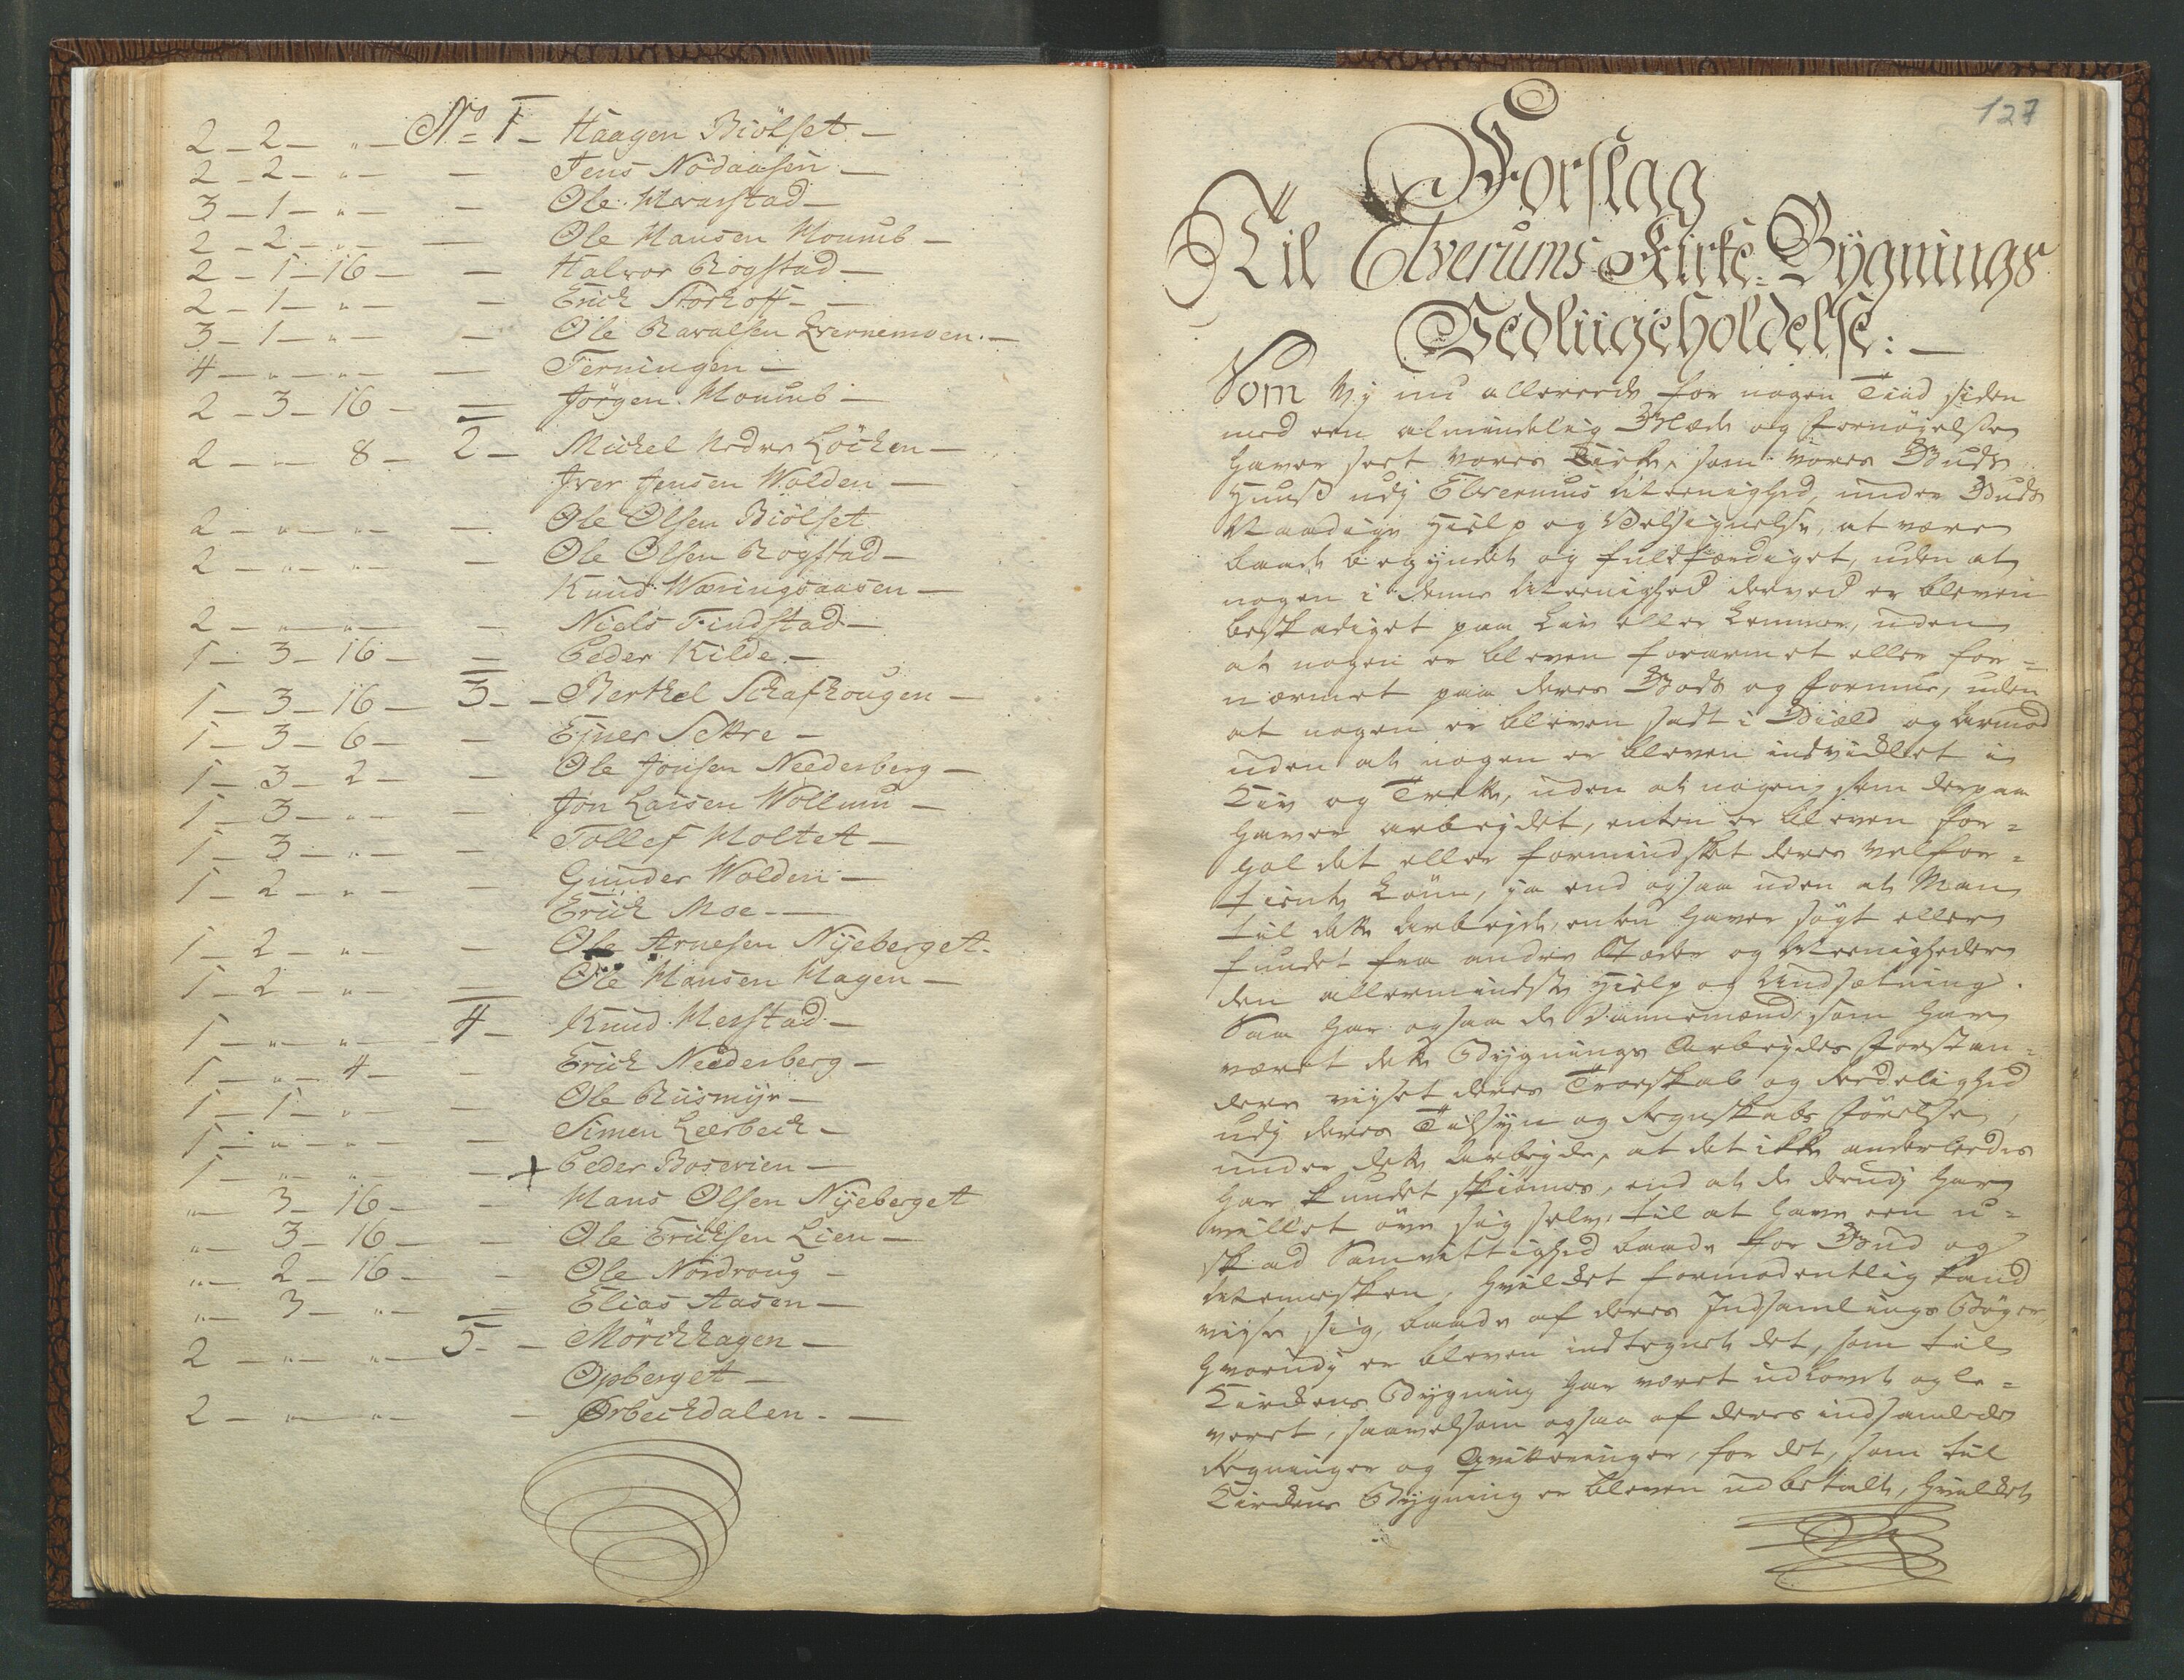 2 - 2 - " - No 1 - Haagen Biölset -
2 - 2 - " - - Jens Nödaasen -
3 - 1 - " - - Ole Hvarstad -
2 - 2 - " - - Ole Hansen Houmb -
2 - 1 - 16 - - Halvor Rogstad -
2 - 1 - " - - Erich Storhoff - -
3 - 1 - " - - Ole Ravalsen Qvernemoen. -
4 - " - " - - Terningen -
2 - 3 - 16 - - Jörgen Houmb -
2 - " - 8 - 2 - Michel Nedre Löchen -
Iver Jensen Wolden -
2 - " - " - - Ole Olsen Biölset
2 - " - " - - Ole Olsen Rogstad -
Knud Wæringsaasen -
2 - " - " - - Niels Findstad -
1 - 3 - 16 - - Peder Kilde -
1 - 3 - 16 - 3 - - Berthel Schafhougen -
1 - 3 - 6 - - Ejner Sætre -
1 - 3 - 2 - - Ole Jonsen Neederberg -
1 - 3 - " - - Jon Larsen Wollum -
1 - 3 - " - - Tollef Holtet -
1 - 2 - " - - Gunder Wolden -
Erich Moe - -
1 - 2 - " - - Ole Arnesen Nÿeberget -
1 - 2 - " - - Ole Hansen Hagen -
1 - " - " - 4 - Knud Herstad -
1 - " - 4 - - Erich Neederberg -
1 - 1 - " - - Ole Riismÿr -
1 - " - " - - Simen Leerbech -
1 - " - " - - + Peder Boserien -
" - 3 - 16 - - Hans Olsen Nÿeberget
" - 3 - 16 - - Ole Erichsen Lien -
" - 2 - 16 - - Ole Nordroug -
" - 3 - " - - Elias Aasen -
2 - " - " - 5 - - Mörchhagen -
Opberget -
2 - " - " - - Ørbechdalen. -
127
Forslag
Til Elverums Kirke-Bÿgnings
Vedliigeholdelse: -
Som Vj nu allereede for nogen Tiid siden
med een almindelig Glæde og Fornöjelse
haver seet vores Kirke, som vores Guds
Huuß udj Elverums Meenighed, under Guds
Naadige Hielp og Velsignelse, at være
baade begyndt og fuldfærdiget, uden at
nogen i denne Meenighed derved er bleven
beskadiget paa Liv eller Lemmer, uden
at nogen er bleven forarmet eller for-
nærmet paa deres Gods og Formue, uden
at nogen er bleven sadt i Giæld og Armod
uden at nogen er bleven indviklet i
Kiv og Trette, uden at nogen, som derpaa
haver arbejdet, enten er bleven for-
holdet eller formindsket deres velfor-
tiente Lönn, ja end ogsaa uden at Man
til dette Arbejde, enten haver sögt eller
fundet fra andre Stæder og Meenigheder
den allermindste Hielp og Undsætning.
Saa har ogsaa de Dannemænd, som har
været dette Bÿgnings Arbejdes Forstan-
dere viiset deres Troeskab og Reedelighed
udj deres Tilsÿn og Regnskabs Förelse,
under dette Arbejde, at det ikke anderleedes
har kundet skiönnes, end at de derudj har
villet öve sig selv, til at have een u-
skad Samvittighed baade for Gud og
Mennesken, hvilket formodentlig kand
viise sig, baade af deres Indsamlings Böger
hvorudj er bleven indtegnet det, som til
Kirkens Bÿgning har været udlovet og le-
veret, saavelsom ogsaa af deres indsamlede
Regninger og Qvitteringer, for det, som til
Kirkens Bÿgning er bleven udbetalt, hvilket